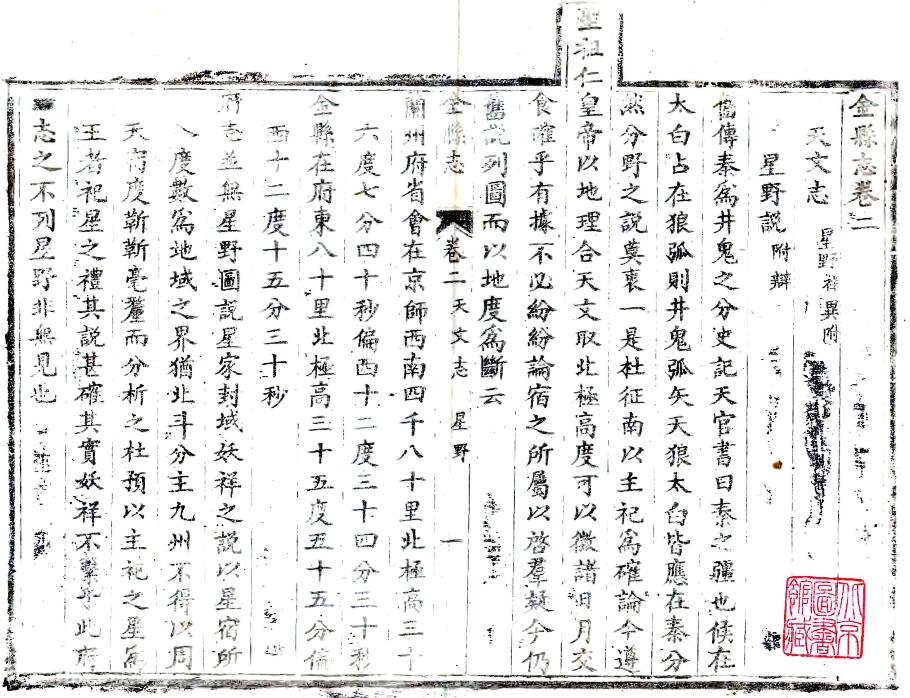 金縣志卷二
天文志 星野祥異附
星野説 附辯
舊傳秦爲井鬼之分史記天官書曰秦之疆也候在
太白占在狼弧則井鬼弧矢天狼太白皆應在秦分
然分野之説莫衷一是杜征南以主祀爲確論今遵
聖祖仁皇帝以地理合天文取北極高度可以徵諸日月交
食確乎有據不必紛紛論宿之所屬以啓羣疑今仍
舊説列圖而以地度爲斷云
金縣志 卷二 天文志 星野 一
蘭州府省會在京師西南四千八十里北極高三十
六度七分四十秒偏西十二度三十四分三十秒
金縣在府東八十里北極高三十五度五十五分偏
西十二度十五分三十秒
府志並無星野圖説星家封域妖祥之説以星宿所
入度數爲地域之界猶北斗分主九州不得以周
天宿度斬斬毫釐而分析之杜預以主祀之星爲
王者祀星之禮其説甚確其實妖祥不繫乎此府
志之不列星野非無見也
北京圖書館藏